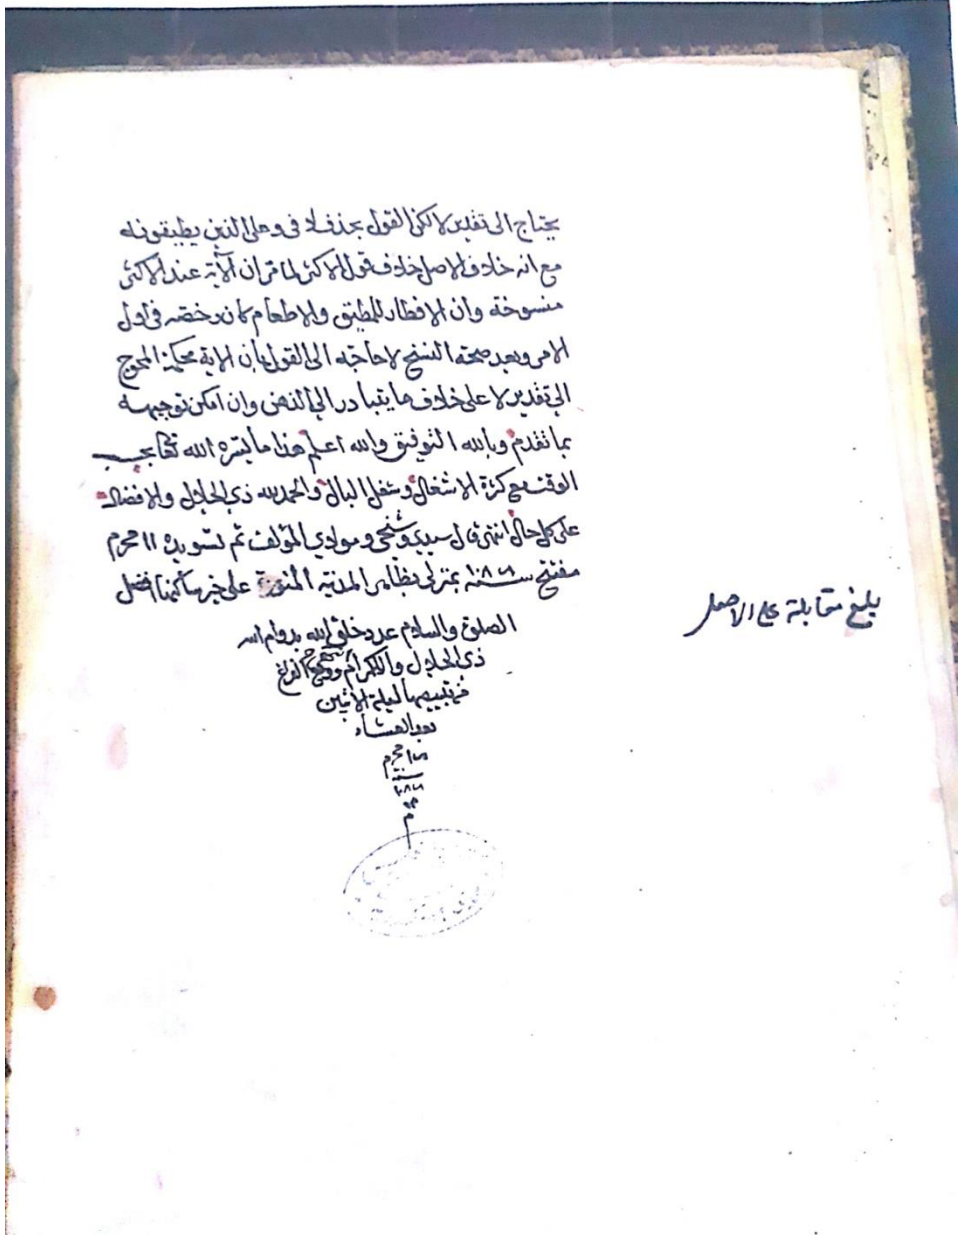 يحتاج الى تقدير لا لكن القول بحذف لا في وعلى الذين يطيقونه
مع انه خلاف الاصل خلاف قول الاكثر لما قران الآية عند الاكثر
منسوخة وان الافطار للمطيق والاطعام كان رخصه في اول
الامر وبعد صحة النسخ لا حاجة الى القول بان الاية محكمة المحوج
الى تقدير لا على خلاف ما يتبادر الى الذهن وان امكن توجيهه
بما تقدم وبالله التوفيق والله اعلم هذا ما يسره الله تعالى بحسب
الوقت مع كثرة الاشغال وشغل البال والحمد لله ذي الجلال والافضال
على كل حال انتهى قال سيدي وشيخي ومولاي المؤلف تم تسويده ١١ محرم
مفتتح سنة ١٠٨٦ بمنزلي بظاهر المدينة المنورة على خير ساكنها افضل
الصلوة والسلام عدد خلق الله بدوام الله
ذي الجلال والاكرام ووقع الفراغ
من تبييضها ليلة الاثنين
بعد العشاء
١٦ محرم
سنة
١٠٨٦
م
بلغ مقابلة على الاصل